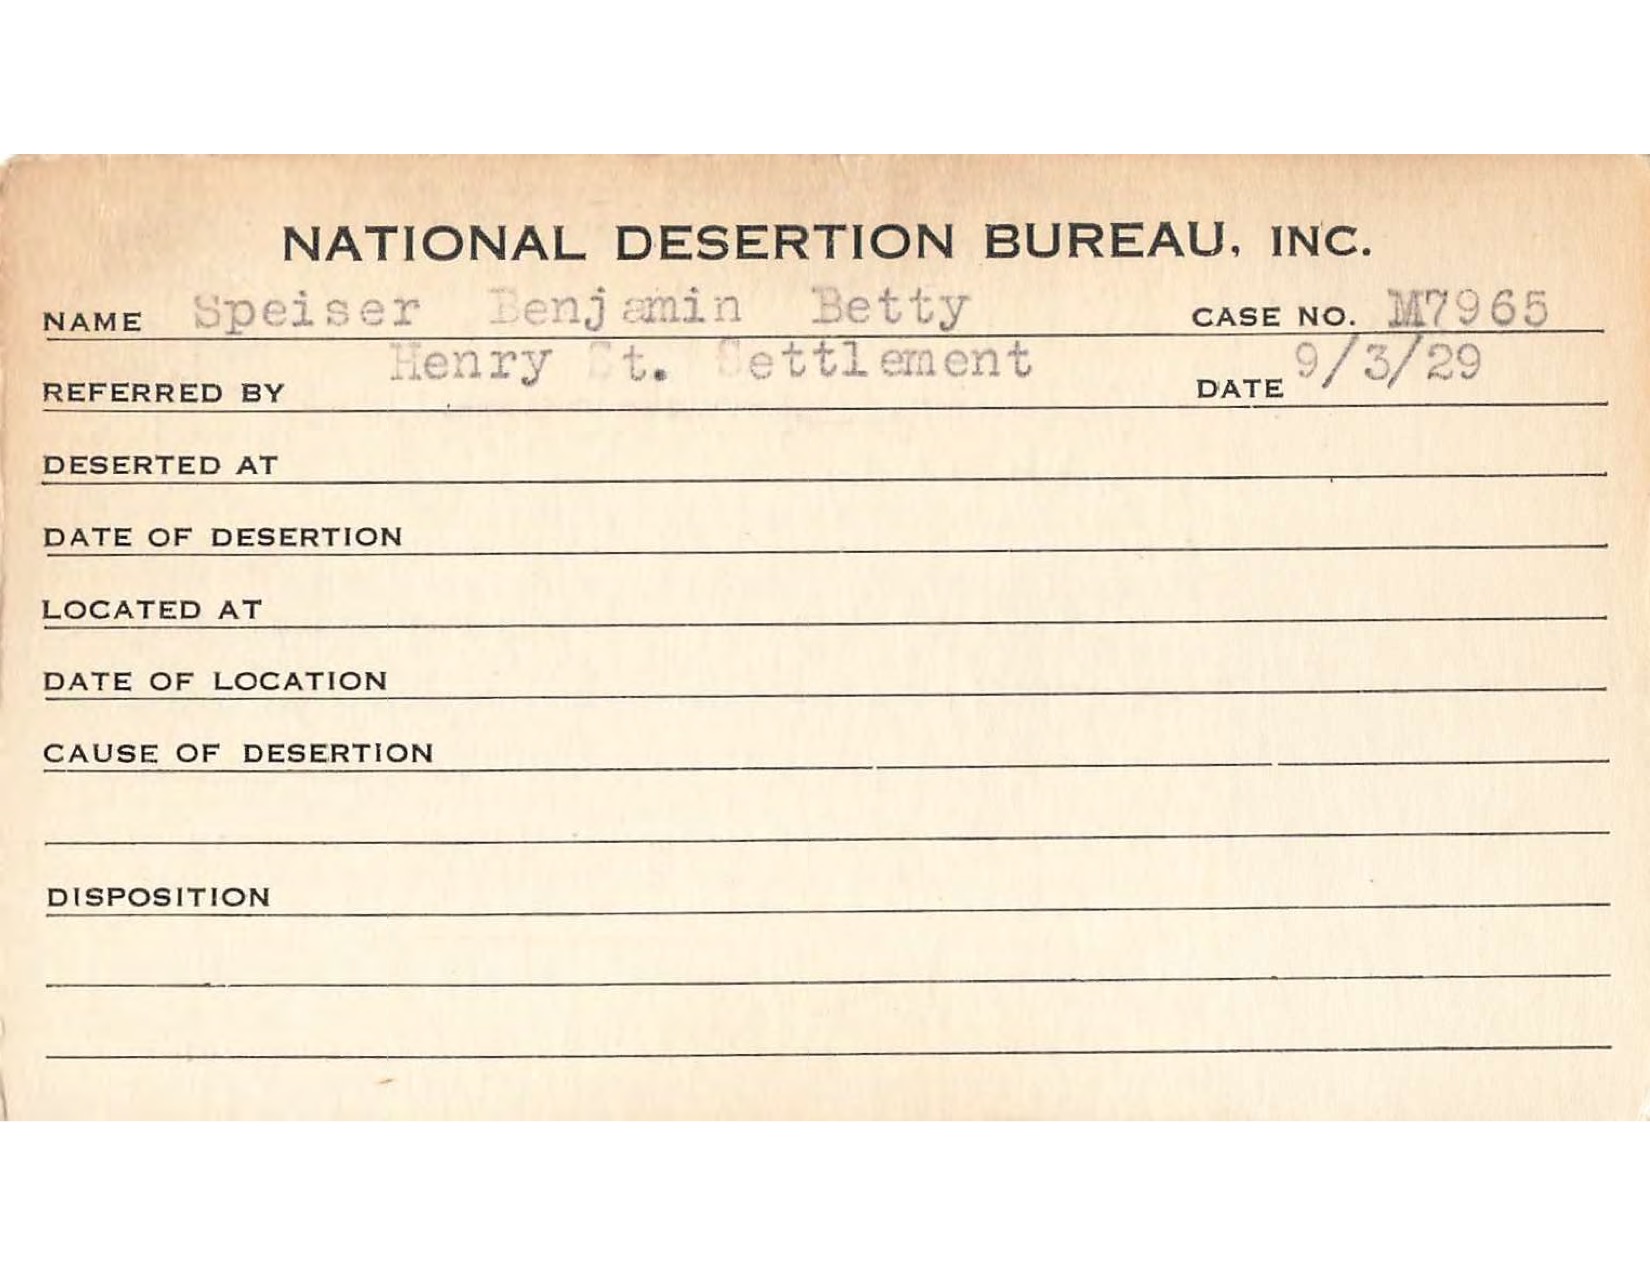 NATIONAL DESERTION BUREAU, INC.
NAME Speiser Benjamin Betty CASE NO. M7965
REFERRED BY Henry St. Settlement DATE 9/3/29
DESERTED AT
DATE OF DESERTION
LOCATED AT
DATE OF LOCATION
CAUSE OF DESERTION
DISPOSITION